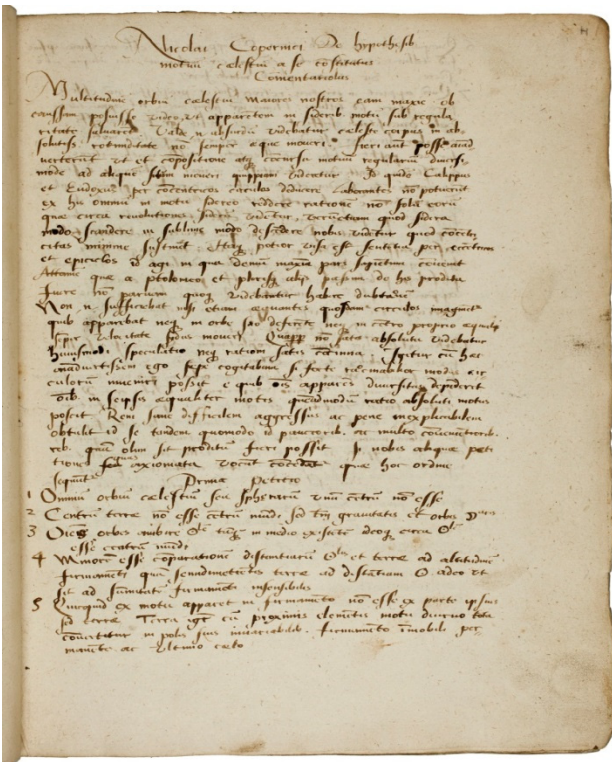 Nicolai Copernici De hypothesib
motuu cælestiu a se costitutis
Comentariolus
Multitudine orbiu cælestiu maiores nostros eam maxie ob
caussam posuisse video, vt apparentem in siderib motu sub regula
ritate saluarent. Valde n absurdu videbatur cæleste corpus in ab
solutiss rotunditate no semper æque moueri. Fieri aut posse aiad
uerterunt vt et copositione atq concursu motuum regulariu diuersi
mode ad alique situm moueri quippiam videretur Id quide Calippus
et Eudoxus per concentricos circulos deducere laborantes no potuerut
ex his omniu in motu sidereo reddere ratione no solu eoru
quæ circa reuolutiones sideru videtur, verumetiam quod sidera
modo scandere in sublime modo descedere nobis videtur quod cocetri
citas minime sustinet Itaq potior visa est sententia per eccentricos
et epiciclos id agi in qua demu maxia pars sapietum couenit
Attamen quæ a ptolomeo et plerisq alijs passim de his prodita
fuere no parum quoq videbantur habere dubitationis
Non n sufficiebat nisi etiam æquantes quosdam circulos imaginaretur
quib apparebat neq in orbe suo deferente neq in cetro proprio æquali
semper velocitate sidus moueri Quapp no satis absoluta videbatur
huiusmodi speculatio neq rationi satis concinna. Igitur cu hec
animaduertissem ego sepe cogitabam si forte rationabilior modus cir
culoru inueniri possit e quib ois apparens diuersitas dependeret
oib in seipsis equaliter motis quemadmodu ratio absoluti motus
poscit Rem sane difficilem aggressus ac pene inexplicabilem
obtulit id se tandem quomodo id paucorib. ac multo couenientiorib.
reb. quam olim sit proditu fieri possit Si nobis aliquæ peti
tiones quas axiomata vocant cocedatur quæ hoc ordine
sequutur
Prima Petitio
1 Omniu orbiu cælestiu seu sphæraru vnu cetru no esse
2 Centru terræ no esse cetru mudi sed tm grauitatis et orbis
3 Oies orbes ambire tanq in medio existete ideoq circa
esse centru mudi
4 Minore esse coparatione distantiaru et terræ ad altitudine
firmamenti qua semidimetietis terræ ad distatiam adeo vt
sit ad sumitate firmamenti insensibilis
5 Quicquid ex motu apparet in firmamento no esse ex parte ipsius
sed terræ Terra igr cu proximis elementis motu diurno tota
conuertitur in polis suis inuariabilib. firmamento imobili per
manente ac vltimo cælo